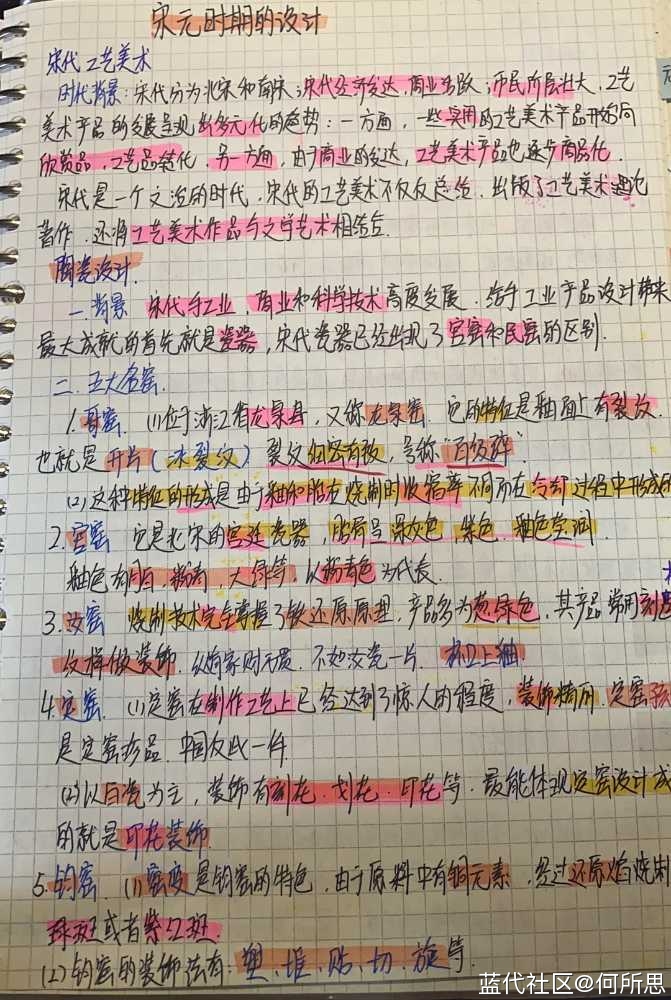 宋元时期的设计
宋代工艺美术
时代背景：宋代分为北宋和南宋；宋代经济发达，商业活跃；市民阶层壮大，工艺
美术产品的发展呈现出多元化的趋势：一方面，一些实用的工艺美术产品开始向
欣赏品，工艺品转化，另一方面，由于商业的发达，工艺美术产品也逐步商品化．
宋代是一个文治的时代．宋代的工艺美术不仅仅总结，出版了工艺美术理论
著作．还将工艺美术作品与文学艺术相结合．
陶瓷设计．
一．背景 宋代手工业，商业和科学技术高度发展．给手工业产品设计带来
最大成就的首先就是瓷器，宋代瓷器已经出现了官窑和民窑的区别．
二．五大名窑．
1．哥窑．(1)位于浙江省龙泉县，又称龙泉窑．它的特征是釉面上有裂纹．
也就是开片（冰裂纹）裂纹细密有致，号称“百圾碎”
(2)这种特征的形成是由于釉和胎在烧制时收缩率不同所在冷却过程中形成
2．官窑 它是北宋的宫廷瓷器，胎骨呈深灰色，紫色，釉色莹润．
釉色有月白．粉青．大绿等．以粉青色为代表．
3．汝窑 烧制技术完全掌握了铁还原原理，产品多为葱绿色，其产品常用刻
纹样做装饰．纵有家财万贯．不如汝瓷一片．
4．定窑．(1)定窑在制作工艺上已经达到了惊人的程度，装饰精丽．定窑孩
是定窑珍品．中国仅此一件．
(2)以白瓷为主，装饰有刻花．划花．印花等．最能体现定窑设计成
的就是印花装饰．
5．钧窑．(1)窑变是钧窑的特色，由于原料中有铜元素，经过还原焰烧制
斑或者紫红斑．
(2)钧窑的装饰法有：塑、堆、贴、切、旋等．
蓝代社区@何所思